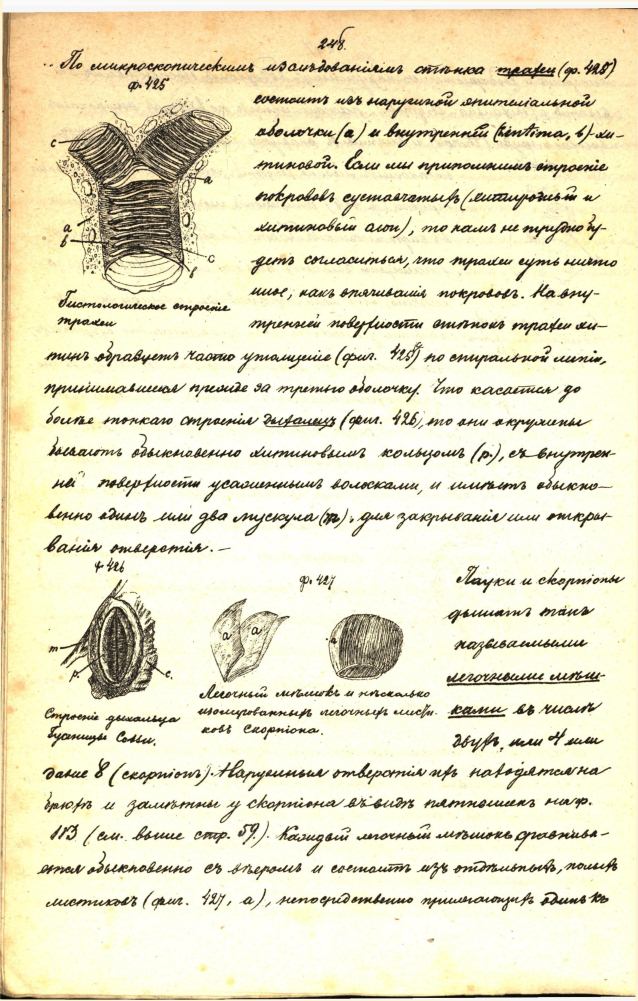 248.
По микроскопическимъ изслѣдованіямъ стѣнка трахеи (ф. 425)
ф. 425
состоитъ изъ наружной эпителіальной
оболочки (a) и внутренней (intima, b) хи-
тиновой. Если мы припомнимъ строеніе
покрововъ суставчатыхъ (хитинородный и
хитиновый слои), то намъ не трудно бу-
детъ согласиться, что трахеи суть ничто
иное, какъ впячиванія покрововъ. На вну-
тренней поверхности стѣнокъ трахеи хи-
c
a
a
b
c
b
Гистологическое строеніе
трахеи
тинъ образуетъ часто утолщеніе (фиг. 425) по спиральной линіи,
принимавшееся прежде за третью оболочку. Что касается до
болѣе тонкаго строенія дыхалецъ (фиг. 426), то они окружены
бываютъ обыкновенно хитиновымъ кольцомъ (p.), съ внутрен-
ней поверхности усаженнымъ волосками, и имѣютъ обыкно-
венно одинъ или два мускула (m), для закрыванія или откры-
ванія отверстія. —
ф. 426
m
p.
e.
Строеніе дыхальца
Гусеницы Cossi.
ф. 427
a
a
Легочный мѣшокъ и нѣсколько
изолированныхъ легочныхъ листи-
ковъ Скорпіона.
Пауки и скорпіоны
дышатъ такъ
называемыми
легочными мѣш-
ками въ числѣ
двухъ, или 4 или
даже 8 (скорпіонъ). Наружныя отверстія ихъ находятся на
брюхѣ и замѣтны у скорпіона въ видѣ пятнышекъ на ф.
113 (см. выше стр. 59.). Каждый легочный мѣшокъ сравнива-
ется обыкновенно съ вѣеромъ и состоитъ изъ отдѣльныхъ, полыхъ
листиковъ (фиг. 427, a), непосредственно прилегающихъ одинъ къ